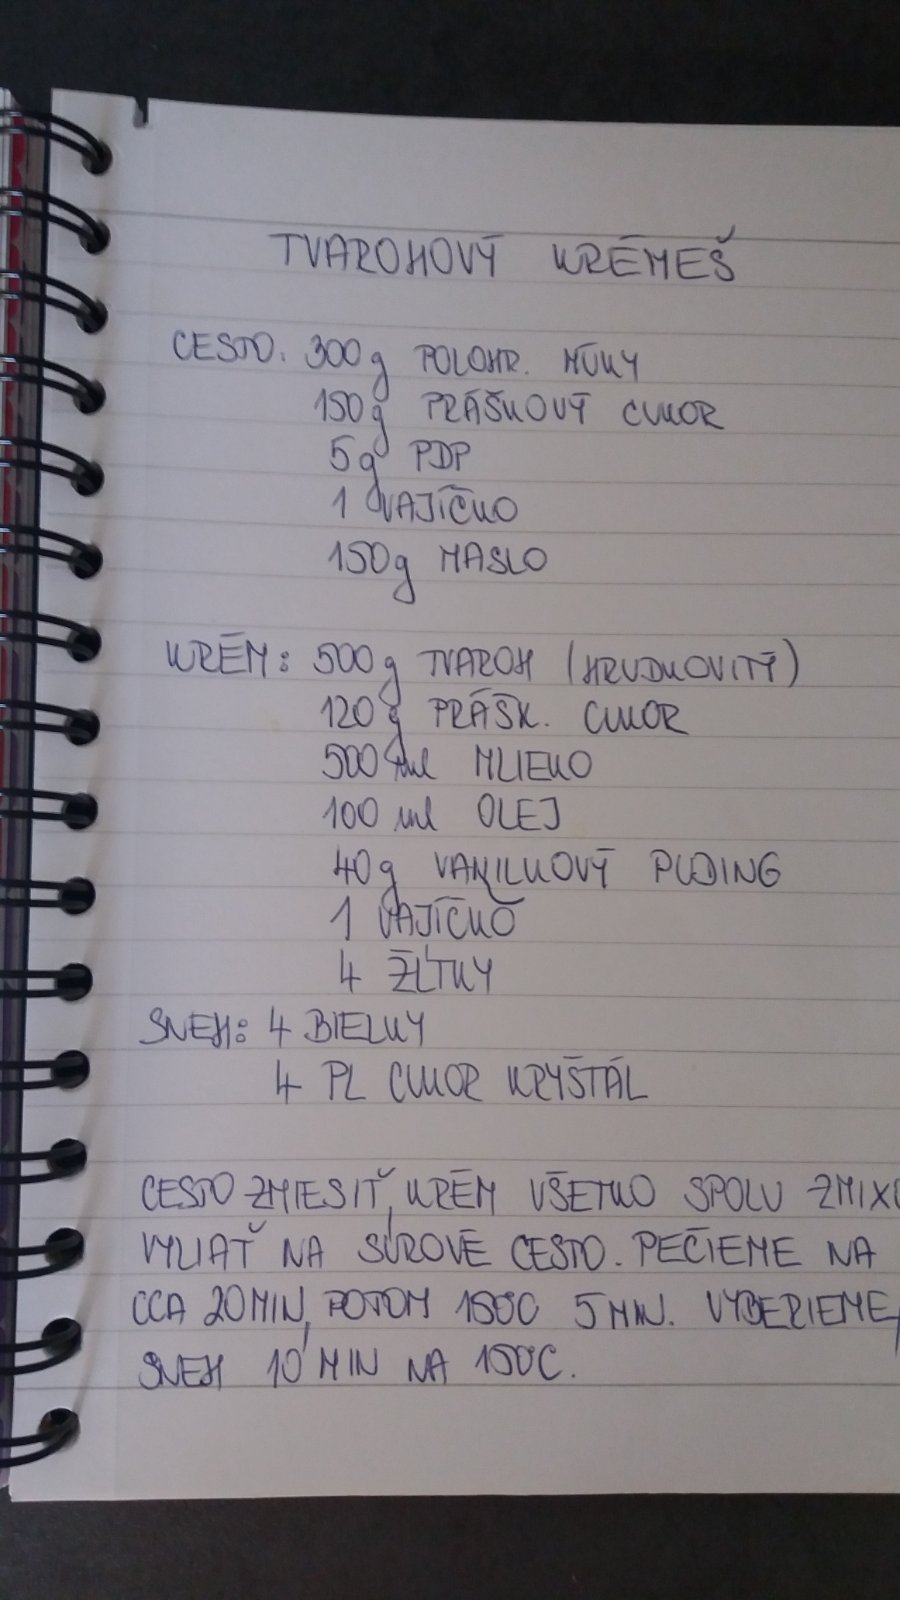 TVAROHOVÝ KRÉMEŠ
CESTO. 300g POLOHR. MÚKY
150g PRÁŠKOVÝ CUKOR
5g PDP
1 VAJÍČKO
150g MASLO
KRÉM: 500g TVAROH (HRUDKOVITÝ)
120g PRÁŠK. CUKOR
500 ml MLIEKO
100 ml OLEJ
40g VANILKOVÝ PUDING
1 VAJÍČKO
4 ŽĹTKY
SNEH: 4 BIELKY
4 PL CUKOR KRYŠTÁL
CESTO ZMIESIŤ, KRÉM VŠETKO SPOLU
VYLIAŤ NA SUROVÉ CESTO. PEČIEME NA
CCA 20MIN, POTOM 150°C 5MIN. VYBERIEME,
SNEH 10 MIN NA 150°C.